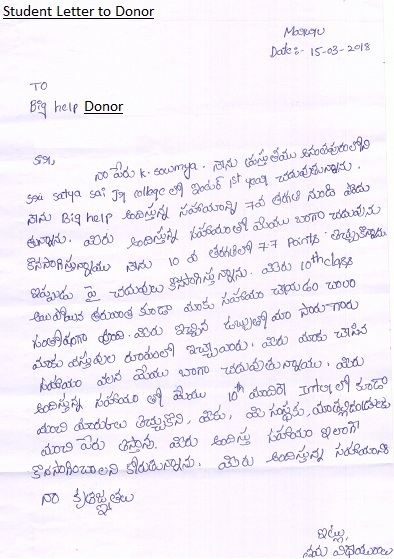 Student Letter to Donor
Date:- 15-03-2018
TO
Big help Donor
Sir,
నా పేరు K. Sowmya. నేను ప్రస్తుతము అనంతపురంలోని
Sri Satya Sai Jr college లో ఇంటర్ 1st year చదువుతున్నాను.
నేను Big help అందిస్తున్న సహాయాన్ని 7వ తరగతి నుండి పొందు
తున్నాను. మీరు అందిస్తున్న సహాయంతో మేము బాగా చదువును
కొనసాగిస్తున్నాము నేను 10 వ తరగతిలో 7.7 Points తెచ్చుకొన్నాను
ఇప్పుడు పై చదువులు కొనసాగిస్తున్నాను. మీరు 10th class
అయిపోయిన తరువాత కూడా మాకు సహాయం చేయడం చాలా
సంతోషంగా ఉంది. మీరు ఇచ్చిన డబ్బుతో మా సారుగారు
మాకు వస్తువుల రూపంలో ఇచ్చేవారు. మీరు మాకు చేసిన
సహాయం వలన మేము బాగా చదువుతున్నాము. మీరు
అందిస్తున్న సహాయం తో మేము 10th మాదిరే Inter లో కూడా
మంచి మార్కులు తెచ్చుకొని, మీకు, మీ సంస్థకు,
మంచి పేరు తెస్తాను. మీరు అందిస్తు సహాయం ఇలాగే
కొనసాగించాలని కోరుతున్నాను. మీరు అందిస్తున్న సహాయానికి
నా కృతజ్ఞతలు
ఇట్లు,
మీ విధేయురాలు